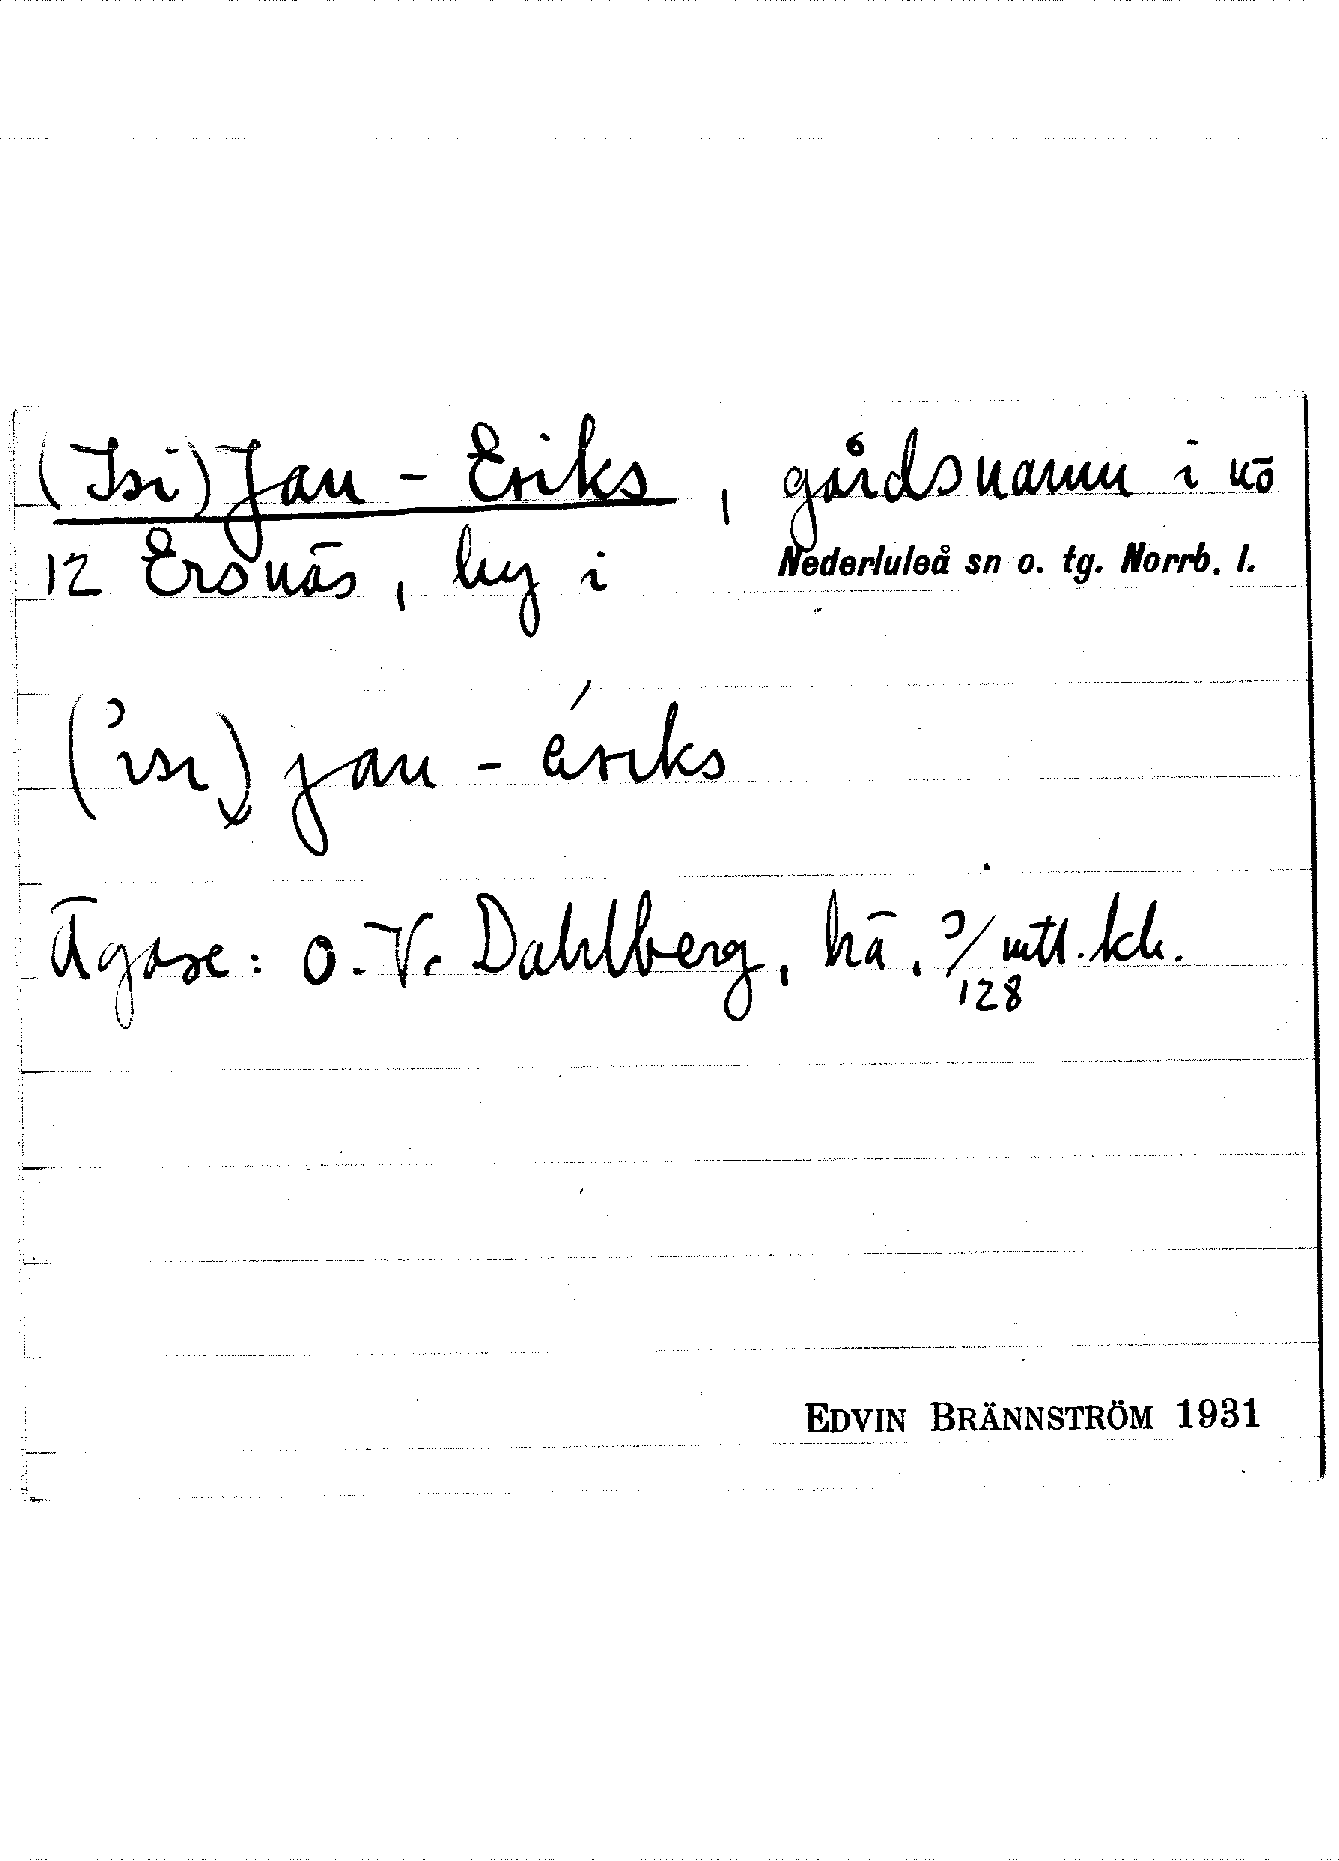 (Isi) Jan - Eriks, gårdsnamn i nö
12 Ersnäs, by i Nederluleå sn o. tg. Norrb. l.
(isi) jan - ériks
Ägare: O. V. Dahlberg, hä. 3/128 mtl. kh.
EDVIN BRÄNNSTRÖM 1931